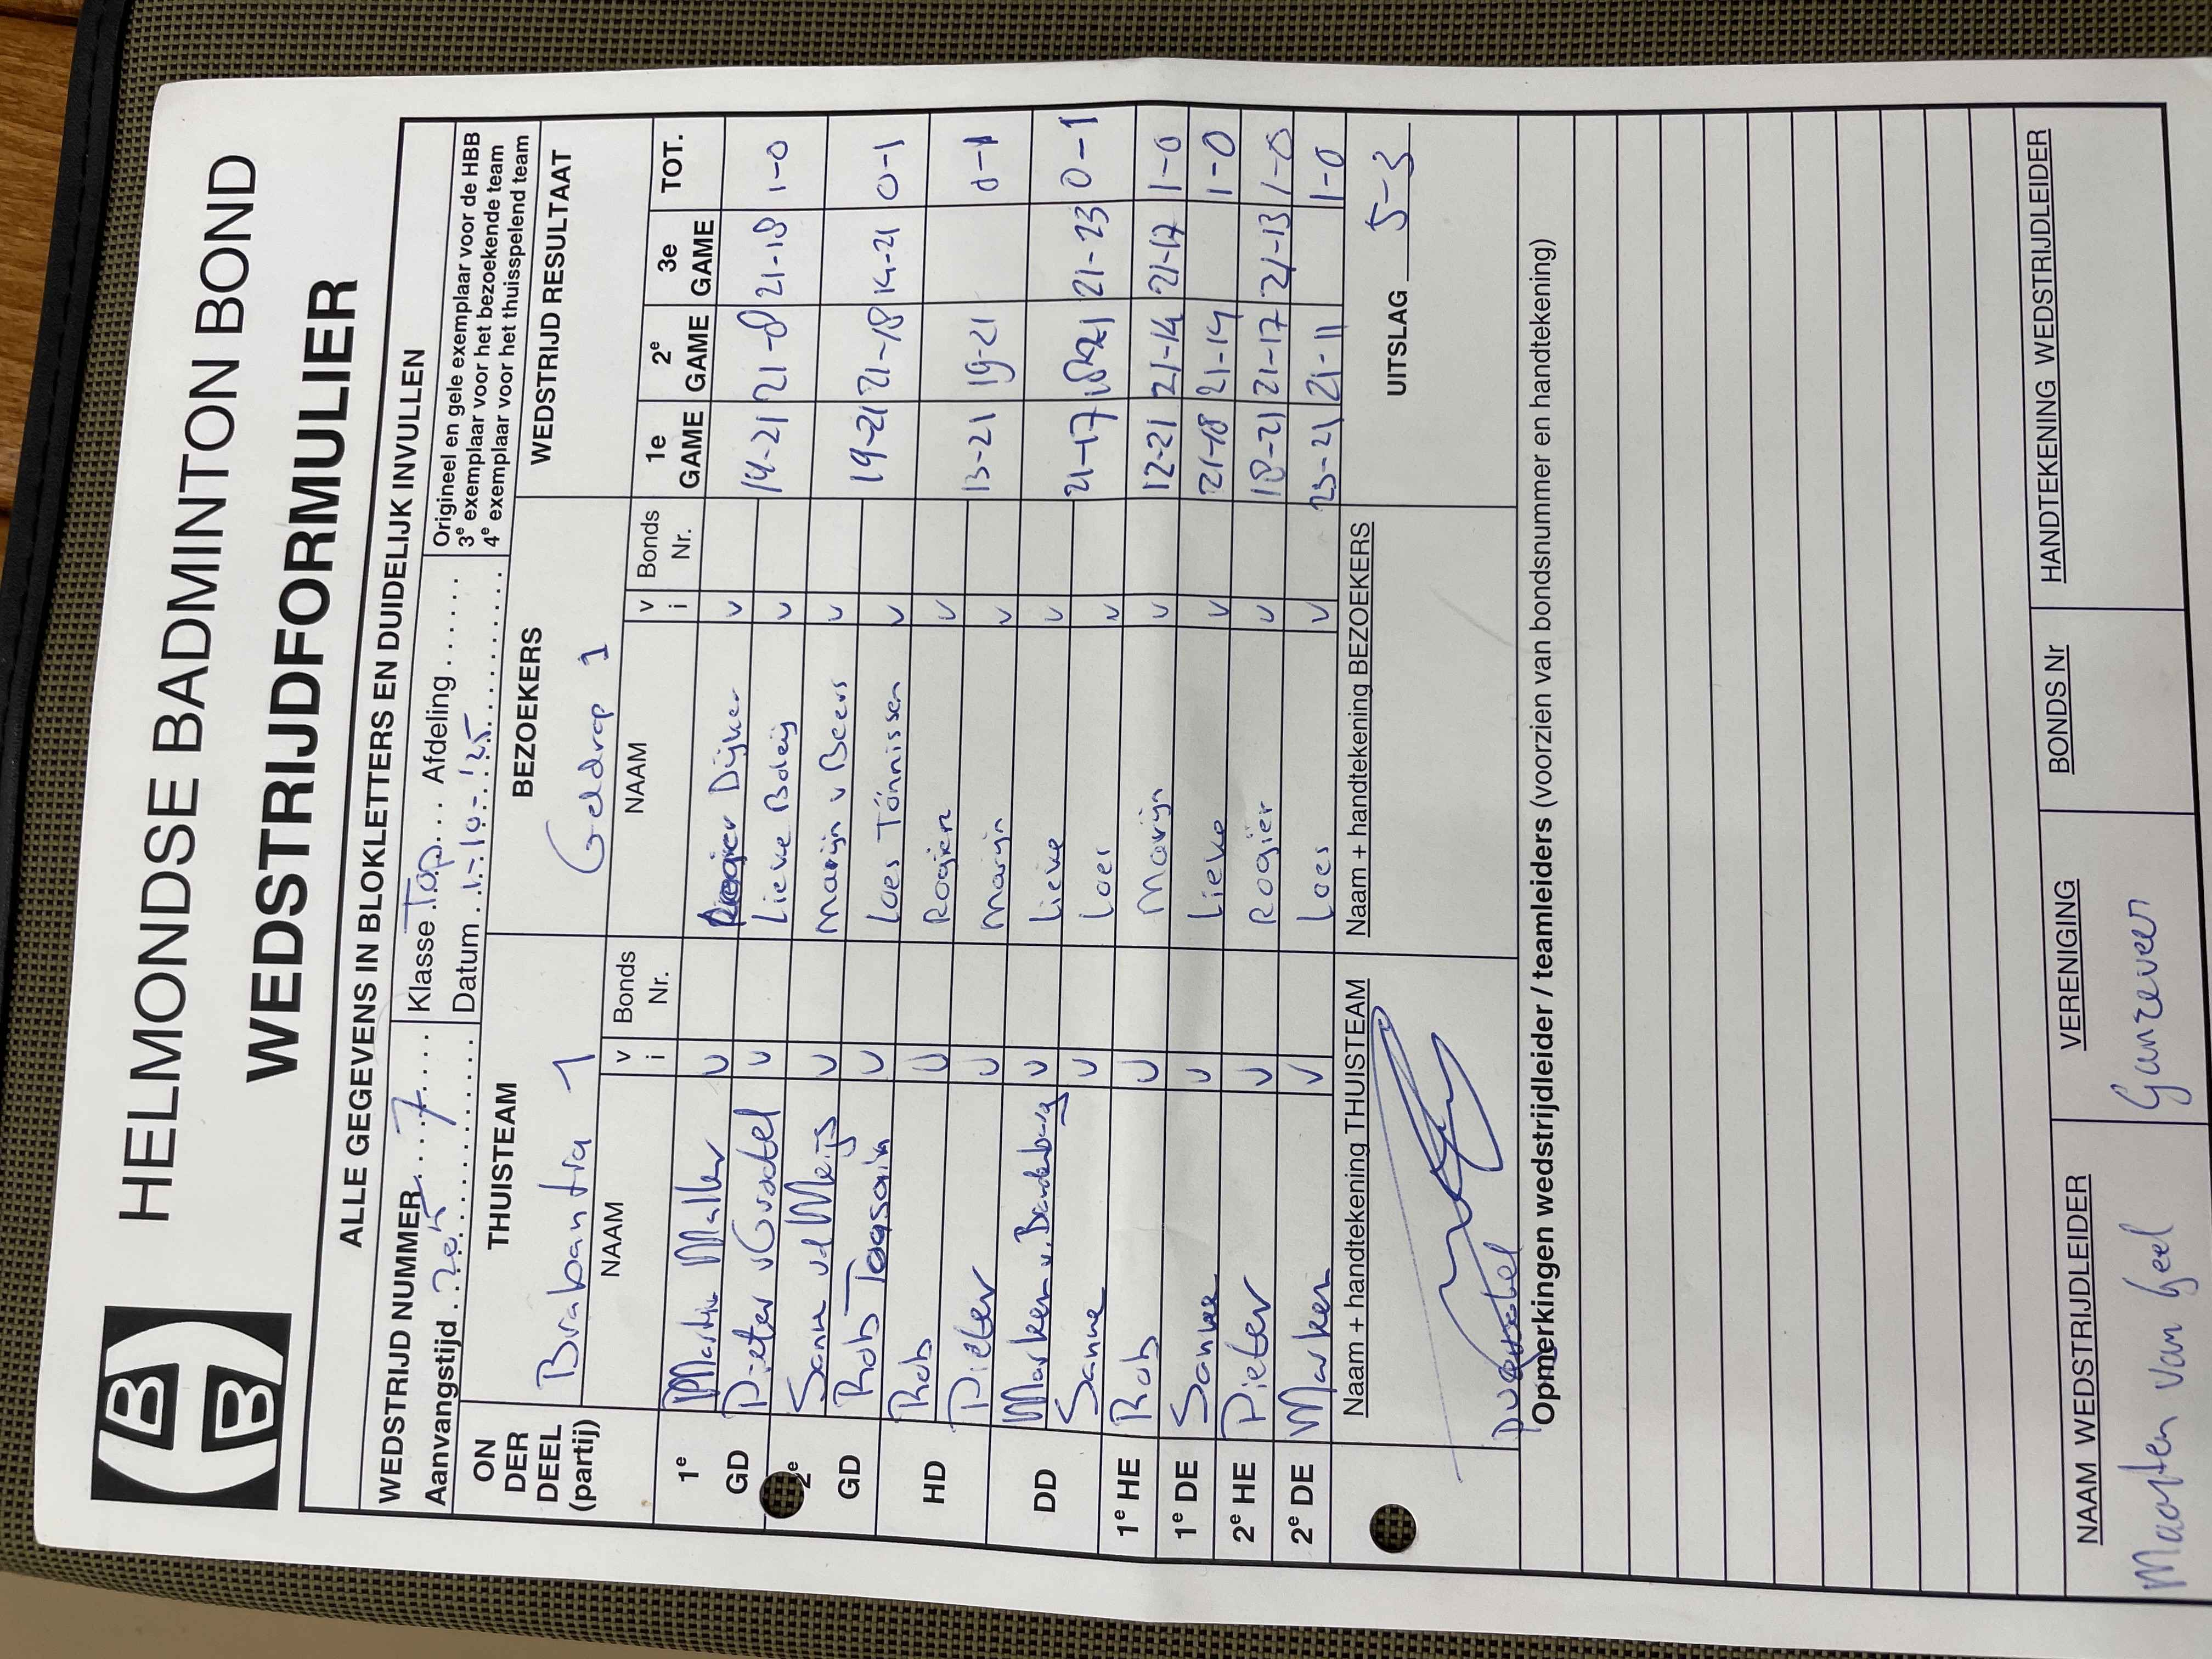 HELMONDSE BADMINTON BOND
WEDSTRIJDFORMULIER
ALLE GEGEVENS IN BLOKLETTERS EN DUIDELIJK INVULLEN
WEDSTRIJD NUMMER 7 Klasse Top Afdeling
Aanvangstijd 20.15 Datum 1-10-'25
Origineel en gele exemplaar voor de HBB
3e exemplaar voor het bezoekende team
4e exemplaar voor het thuisspelend team
ON DER DEEL (partij) THUISTEAM BEZOEKERS WEDSTRIJD RESULTAAT
Brabantia 1 Geldrop 1
NAAM v i Bonds Nr. NAAM v i Bonds Nr. 1e GAME 2e GAME 3e GAME TOT.
1e GD Martin Muller v Rogier Dijker v
Pieter v Grootel v Lieke Boleij v 14-21 21-8 21-18 1-0
2e GD Sanne vd Meijs v Marijn v Beers v
Rob v Loes Tönnissen v 19-21 21-18 14-21 0-1
HD Rob v Rogier v
Pieter v Marijn v 13-21 19-21 0-1
DD Marleen v. Brandenburg v Lieke v
Sanne v Loes v 21-17 18-21 21-23 0-1
1e HE Rob v Marijn v 12-21 21-14 21-17 1-0
1e DE Sanne v Lieke v 21-18 21-14 1-0
2e HE Pieter v Rogier v 18-21 21-17 21-13 1-0
2e DE Marleen v Loes v 23-21 21-11 1-0
Naam + handtekening THUISTEAM Naam + handtekening BEZOEKERS UITSLAG 5-3
Opmerkingen wedstrijdleider / teamleiders (voorzien van bondsnummer en handtekening)
NAAM WEDSTRIJDLEIDER VERENIGING BONDS Nr HANDTEKENING WEDSTRIJDLEIDER
Maarten van Geel Ganzeveer